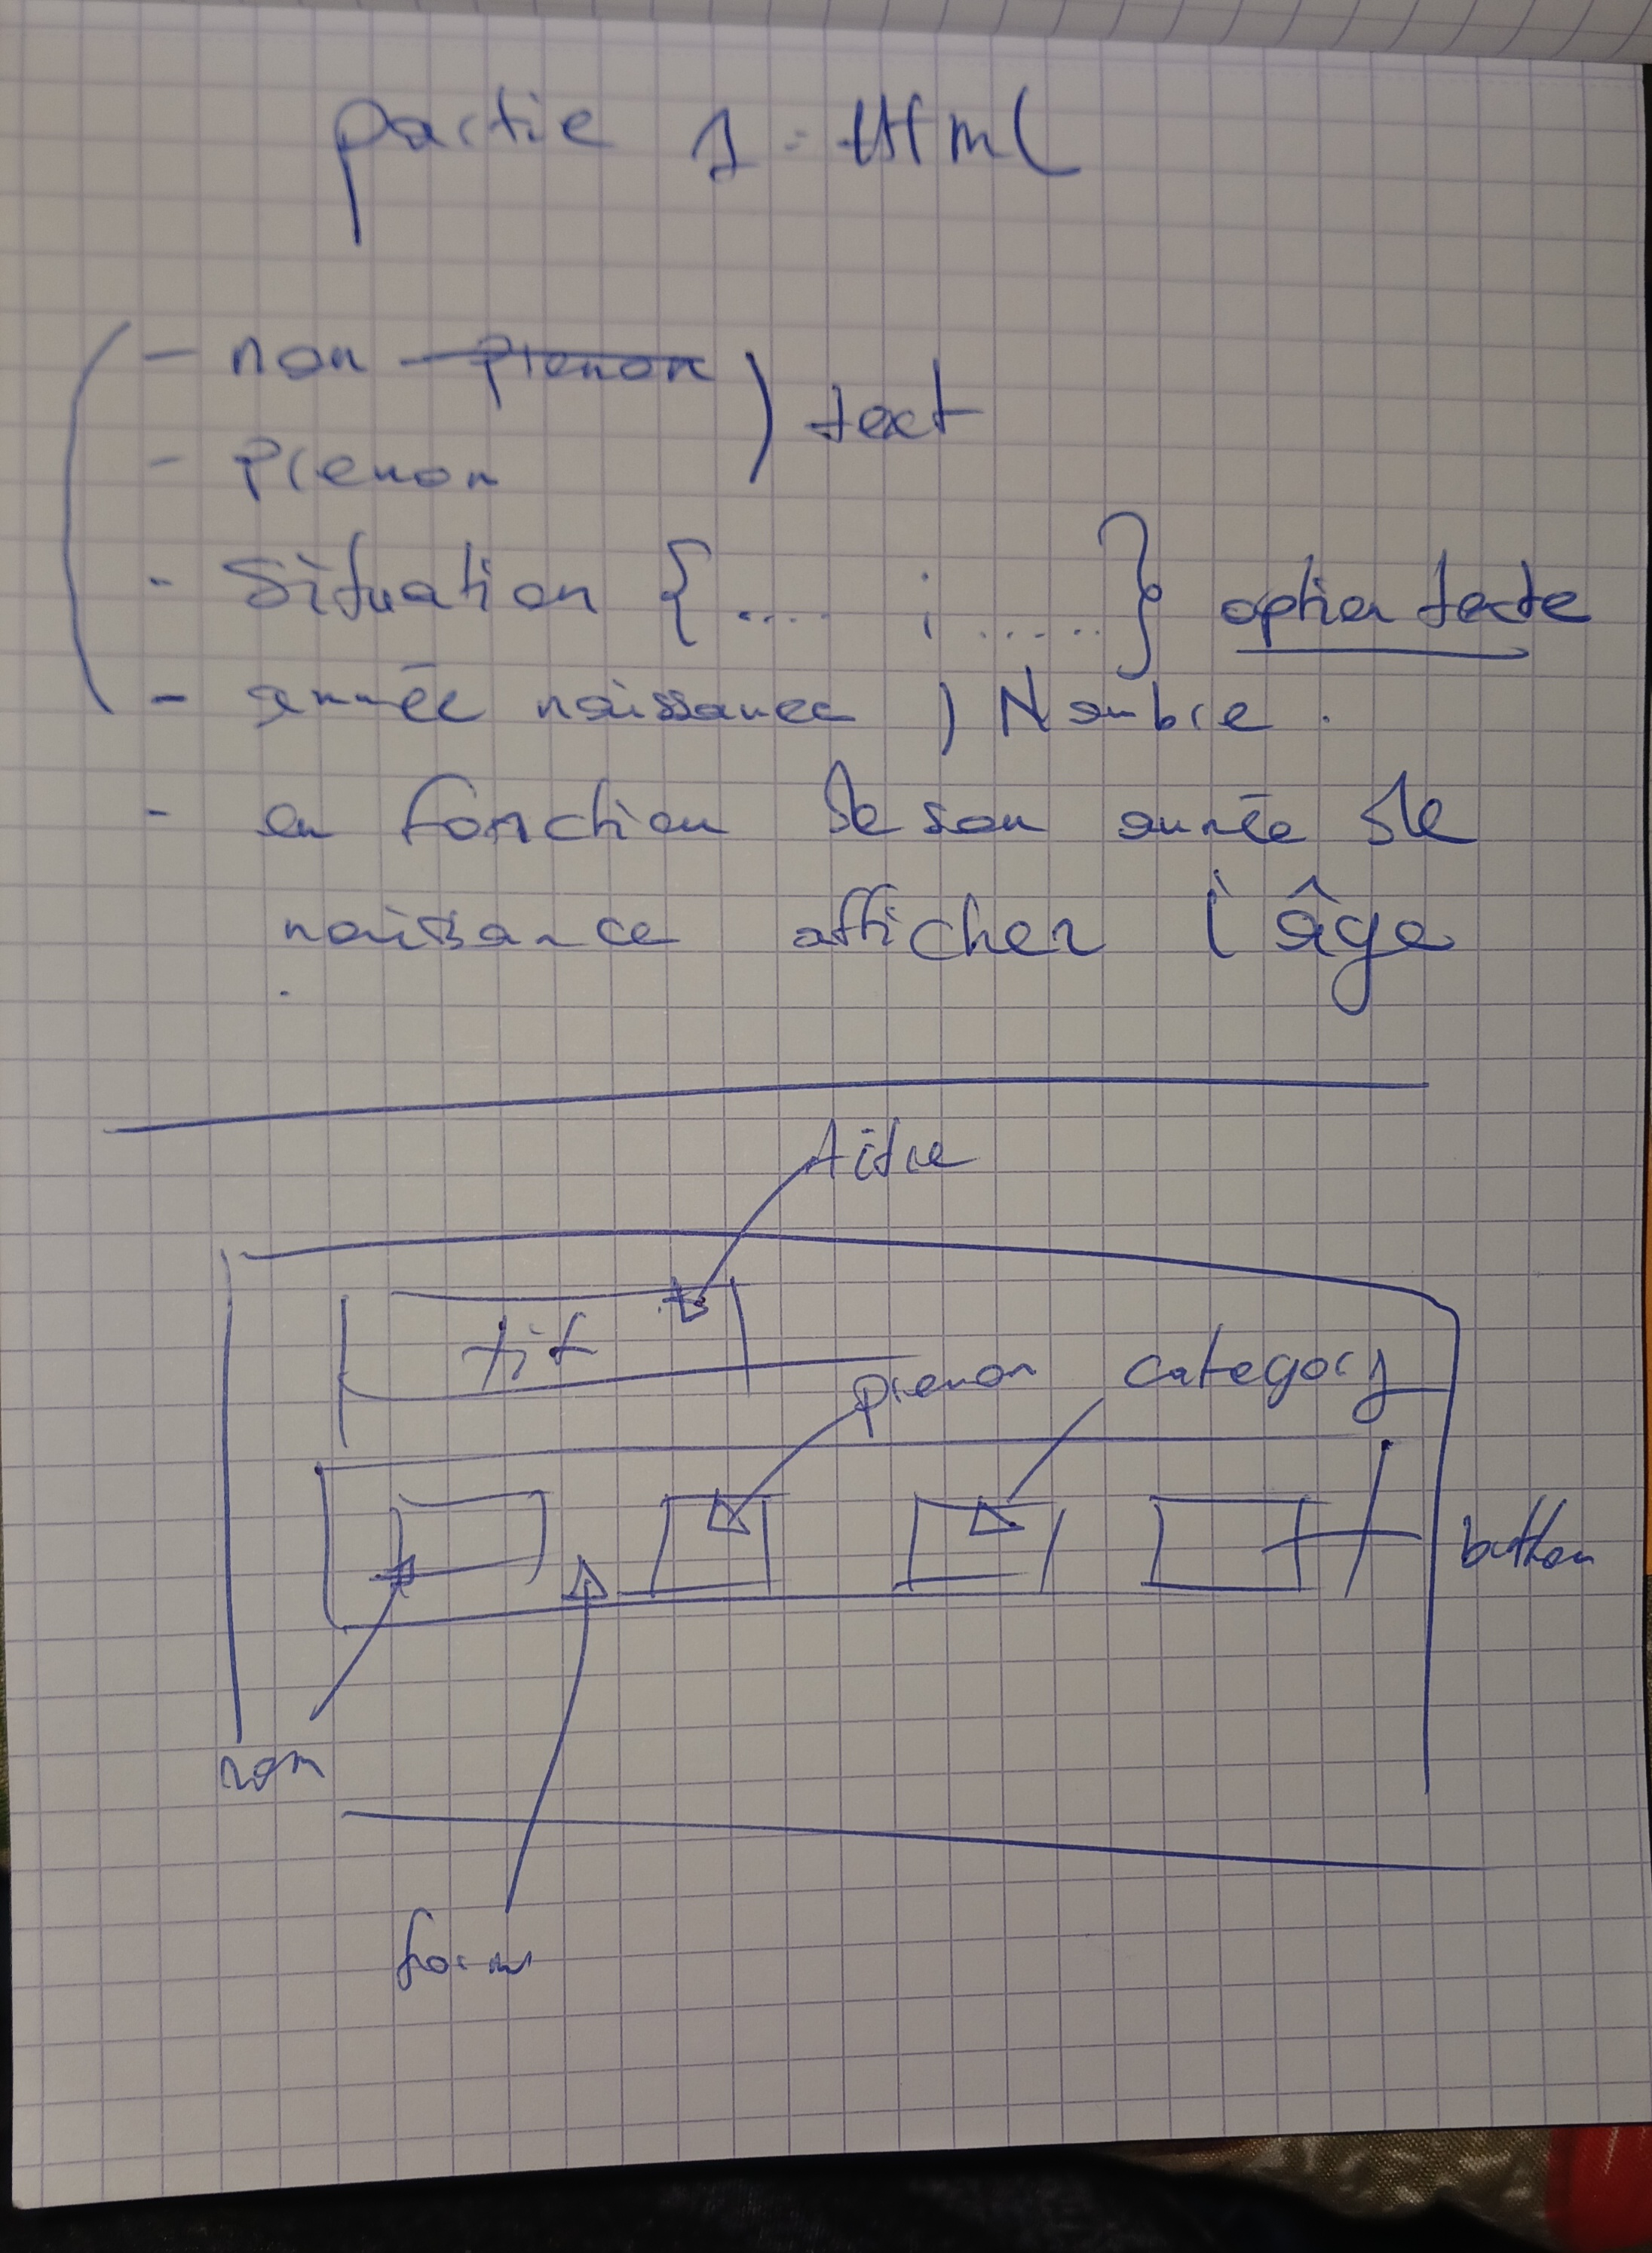 partie 1 : Html
- nom prenom ) text
- Prenom
- Situation {.... ; ......} option texte
- année naissance ) Nombre .
- en fonction de son année de
naissance afficher l'âge
titre
tit
prenom category
button
nom
form